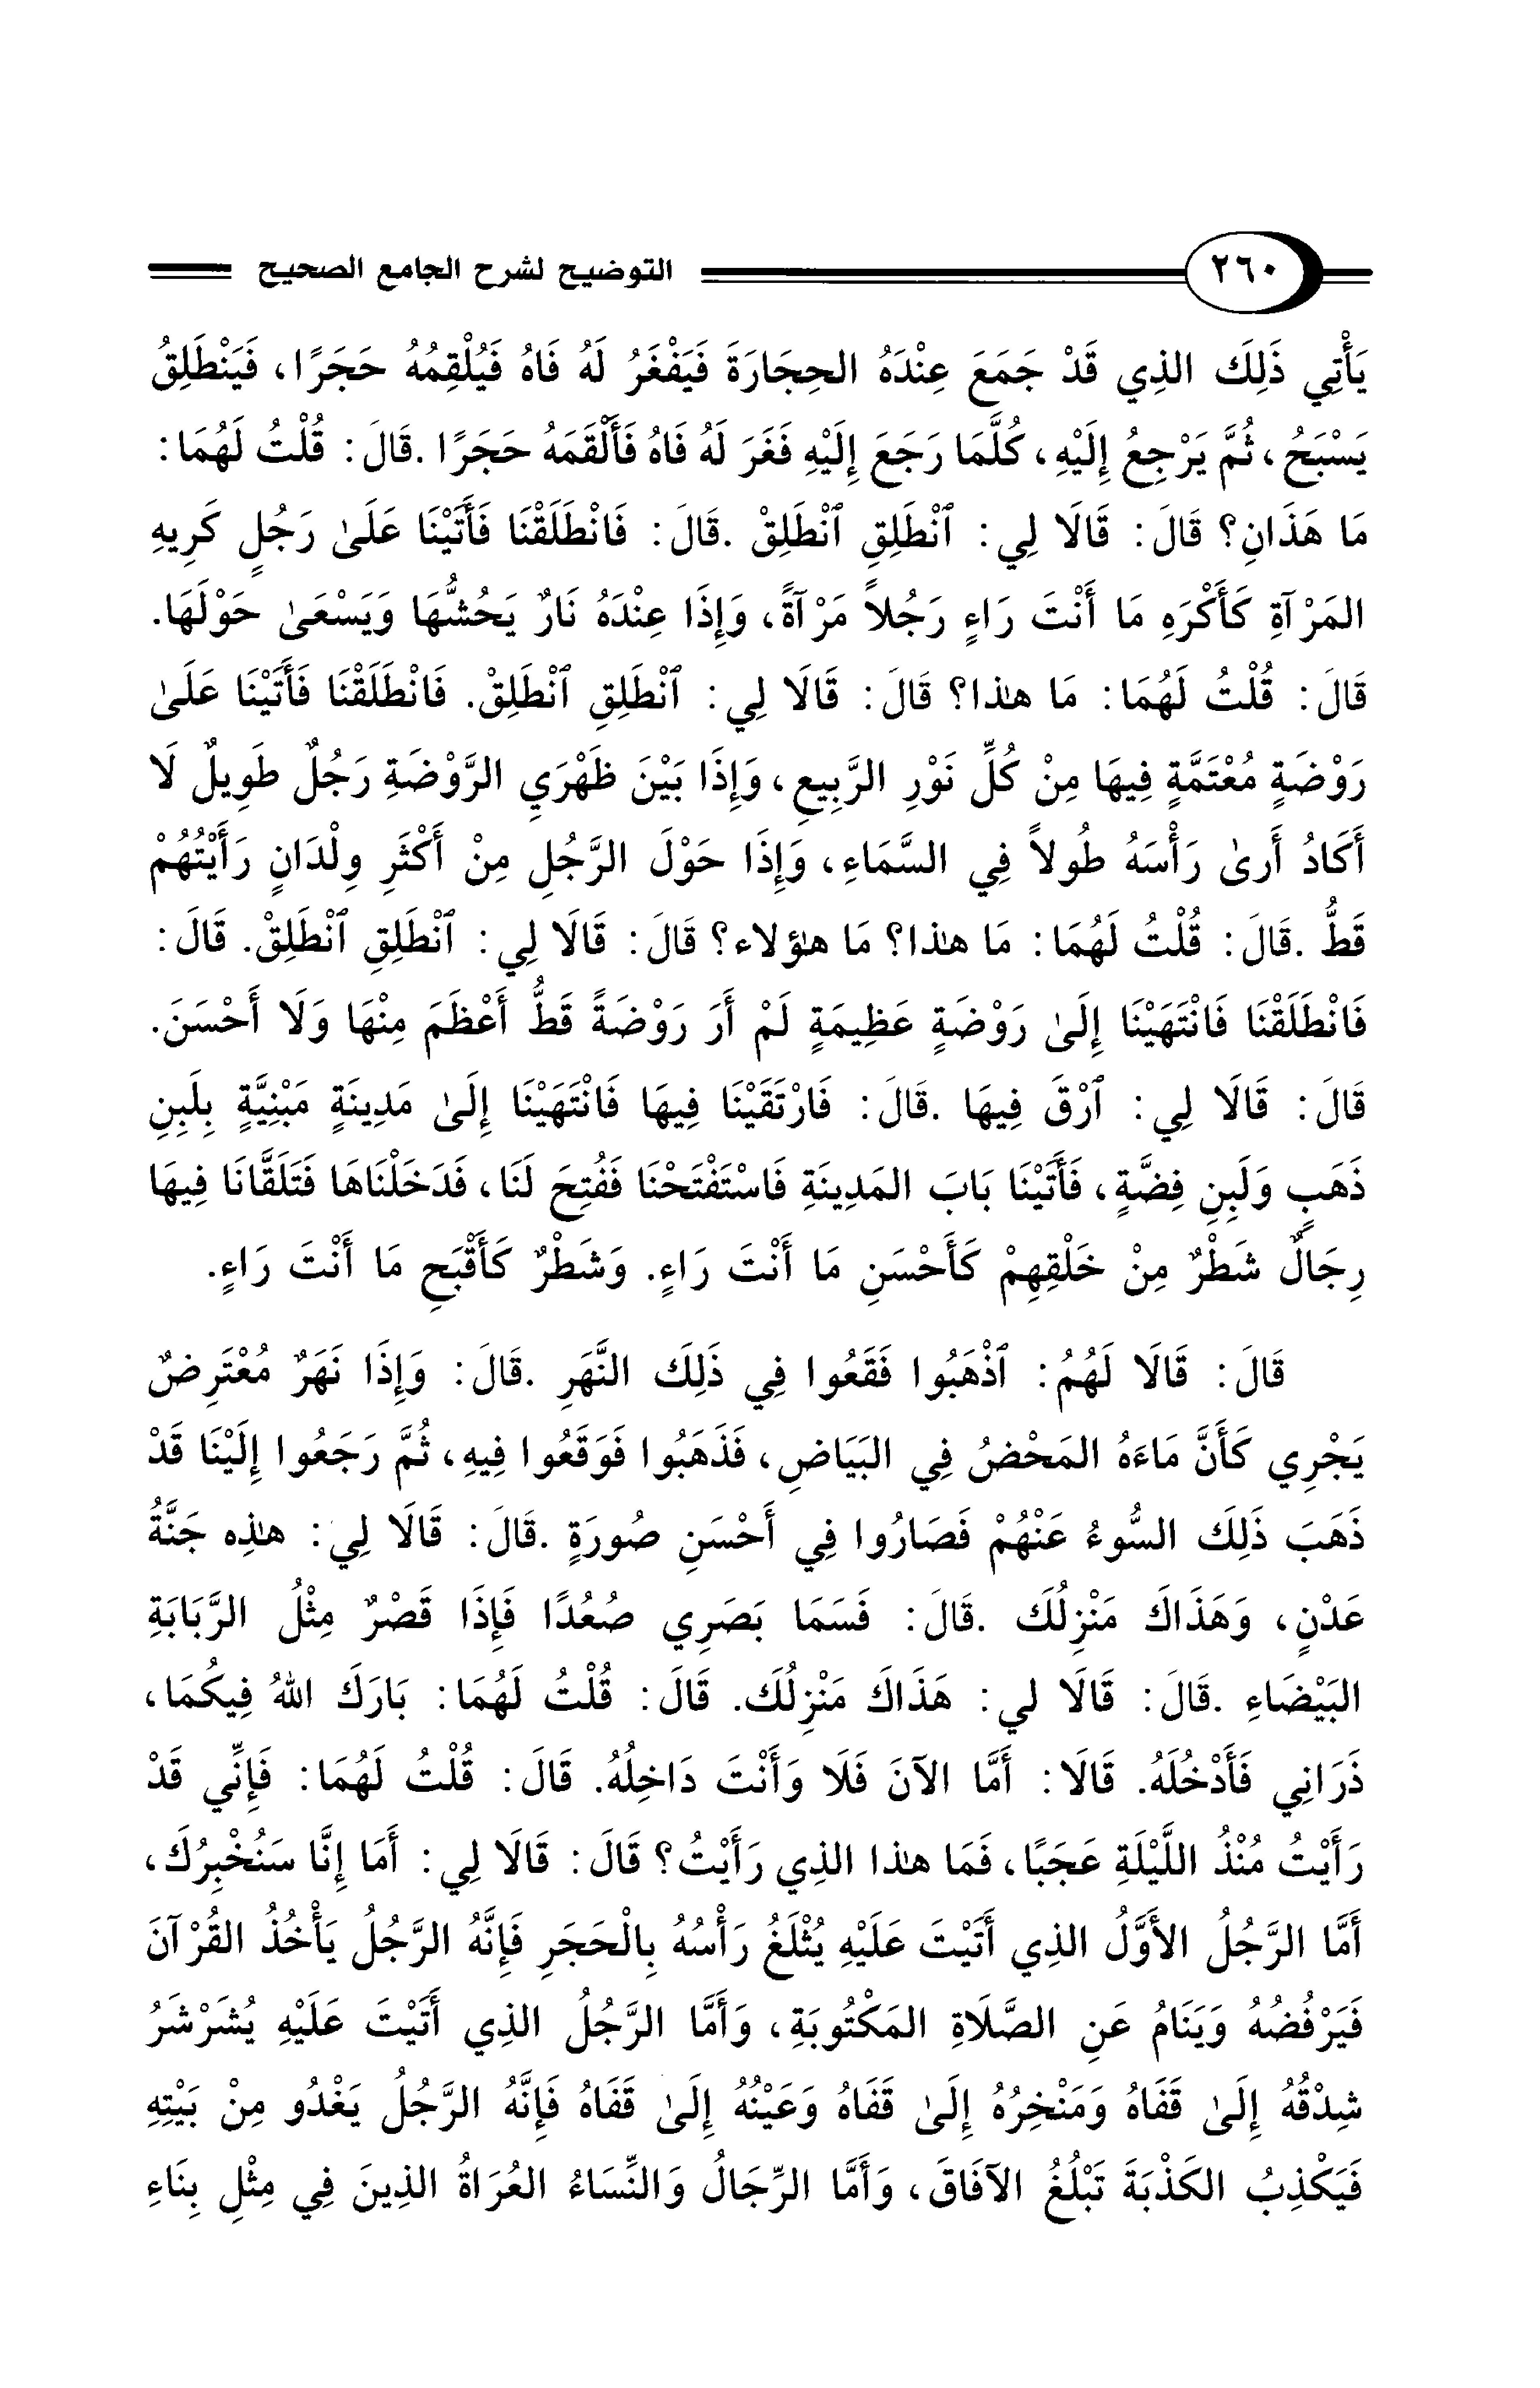 ٢٦٠ التوضيح لشرح الجامع الصحيح
يَأْتِي ذَلِكَ الذِي قَدْ جَمَعَ عِنْدَهُ الحِجَارَةَ فَيَفْغَرُ لَهُ فَاهُ فَيُلْقِمُهُ حَجَرًا، فَيَنْطَلِقُ
يَسْبَحُ، ثُمَّ يَرْجِعُ إِلَيْهِ، كُلَّمَا رَجَعَ إِلَيْهِ فَغَرَ لَهُ فَاهُ فَأَلْقَمَهُ حَجَرًا .قَالَ: قُلْتُ لَهُمَا:
مَا هَذَانِ؟ قَالَ: قَالَا لِي: ٱنْطَلِقِ ٱنْطَلِقْ .قَالَ: فَانْطَلَقْنَا فَأَتَيْنَا عَلَىٰ رَجُلٍ كَرِيهِ
المَرْآةِ كَأَكْرَهِ مَا أَنْتَ رَاءٍ رَجُلاً مَرْآةً، وَإِذَا عِنْدَهُ نَارٌ يَحُشُّهَا وَيَسْعَىٰ حَوْلَهَا.
قَالَ: قُلْتُ لَهُمَا: مَا هٰذا؟ قَالَ: قَالَا لِي: ٱنْطَلِقِ ٱنْطَلِقْ. فَانْطَلَقْنَا فَأَتَيْنَا عَلَىٰ
رَوْضَةٍ مُعْتَمَّةٍ فِيهَا مِنْ كُلِّ نَوْرِ الرَّبِيعِ، وَإِذَا بَيْنَ ظَهْرَيِ الرَّوْضَةِ رَجُلٌ طَوِيلٌ لَا
أَكَادُ أَرىٰ رَأْسَهُ طُولاً فِي السَّمَاءِ، وَإِذَا حَوْلَ الرَّجُلِ مِنْ أَكْثَرِ وِلْدَانٍ رَأَيْتُهُمْ
قَطُّ .قَالَ: قُلْتُ لَهُمَا: مَا هٰذا؟ مَا هٰؤلاء؟ قَالَ: قَالَا لِي: ٱنْطَلِقِ ٱنْطَلِقْ. قَالَ:
فَانْطَلَقْنَا فَانْتَهَيْنَا إِلَىٰ رَوْضَةٍ عَظِيمَةٍ لَمْ أَرَ رَوْضَةً قَطُّ أَعْظَمَ مِنْهَا وَلَا أَحْسَنَ.
قَالَ: قَالَا لِي: ٱرْقَ فِيهَا .قَالَ: فَارْتَقَيْنَا فِيهَا فَانْتَهَيْنَا إِلَىٰ مَدِينَةٍ مَبْنِيَّةٍ بِلَبِنِ
ذَهَبٍ وَلَبِنِ فِضَّةٍ، فَأَتَيْنَا بَابَ المَدِينَةِ فَاسْتَفْتَحْنَا فَفُتِحَ لَنَا، فَدَخَلْنَاهَا فَتَلَقَّانَا فِيهَا
رِجَالٌ شَطْرٌ مِنْ خَلْقِهِمْ كَأَحْسَنِ مَا أَنْتَ رَاءٍ. وَشَطْرٌ كَأَقْبَحِ مَا أَنْتَ رَاءٍ.
قَالَ: قَالَا لَهُمُ: ٱذْهَبُوا فَقَعُوا فِي ذَلِكَ النَّهَرِ .قَالَ: وَإِذَا نَهَرٌ مُعْتَرِضٌ
يَجْرِي كَأَنَّ مَاءَهُ المَحْضُ فِي البَيَاضِ، فَذَهَبُوا فَوَقَعُوا فِيهِ، ثُمَّ رَجَعُوا إِلَيْنَا قَدْ
ذَهَبَ ذَلِكَ السُّوءُ عَنْهُمْ فَصَارُوا فِي أَحْسَنِ صُورَةٍ .قَالَ: قَالَا لِي: هٰذِه جَنَّةُ
عَدْنٍ، وَهَذَاكَ مَنْزِلُكَ .قَالَ: فَسَمَا بَصَرِي صُعُدًا فَإِذَا قَصْرٌ مِثْلُ الرَّبَابَةِ
البَيْضَاءِ .قَالَ: قَالَا لي: هَذَاكَ مَنْزِلُكَ. قَالَ: قُلْتُ لَهُمَا: بَارَكَ اللهُ فِيكُمَا،
ذَرَانِي فَأَدْخُلَهُ. قَالَا: أَمَّا الآنَ فَلَا وَأَنْتَ دَاخِلُهُ. قَالَ: قُلْتُ لَهُمَا: فَإِنِّي قَدْ
رَأَيْتُ مُنْذُ اللَّيْلَةِ عَجَبًا، فَمَا هٰذا الذِي رَأَيْتُ؟ قَالَ: قَالَا لِي: أَمَا إِنَّا سَنُخْبِرُكَ،
أَمَّا الرَّجُلُ الأَوَّلُ الذِي أَتَيْتَ عَلَيْهِ يُثْلَغُ رَأْسُهُ بِالْحَجَرِ فَإِنَّهُ الرَّجُلُ يَأْخُذُ القُرْآنَ
فَيَرْفُضُهُ وَيَنَامُ عَنِ الصَّلَاةِ المَكْتُوبَةِ، وَأَمَّا الرَّجُلُ الذِي أَتَيْتَ عَلَيْهِ يُشَرْشَرُ
شِدْقُهُ إِلَىٰ قَفَاهُ وَمَنْخِرُهُ إِلَىٰ قَفَاهُ وَعَيْنُهُ إِلَىٰ قَفَاهُ فَإِنَّهُ الرَّجُلُ يَغْدُو مِنْ بَيْتِهِ
فَيَكْذِبُ الكَذْبَةَ تَبْلُغُ الآفَاقَ، وَأَمَّا الرِّجَالُ وَالنِّسَاءُ العُرَاةُ الذِينَ فِي مِثْلِ بِنَاءِ